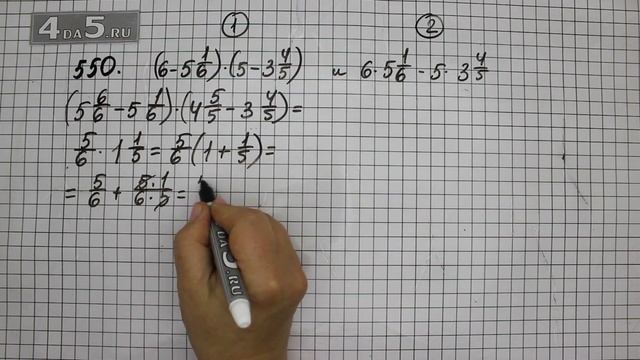 4ДА5.RU
① ②
550. (6-5 1/6)·(5-3 4/5) и 6·5 1/6 - 5·3 4/5
(5 6/6 - 5 1/6)·(4 5/5 - 3 4/5)=
5/6 · 1 1/5 = 5/6 (1 + 1/5)=
= 5/6 + 5·1/6·5 =
ДА5.RU